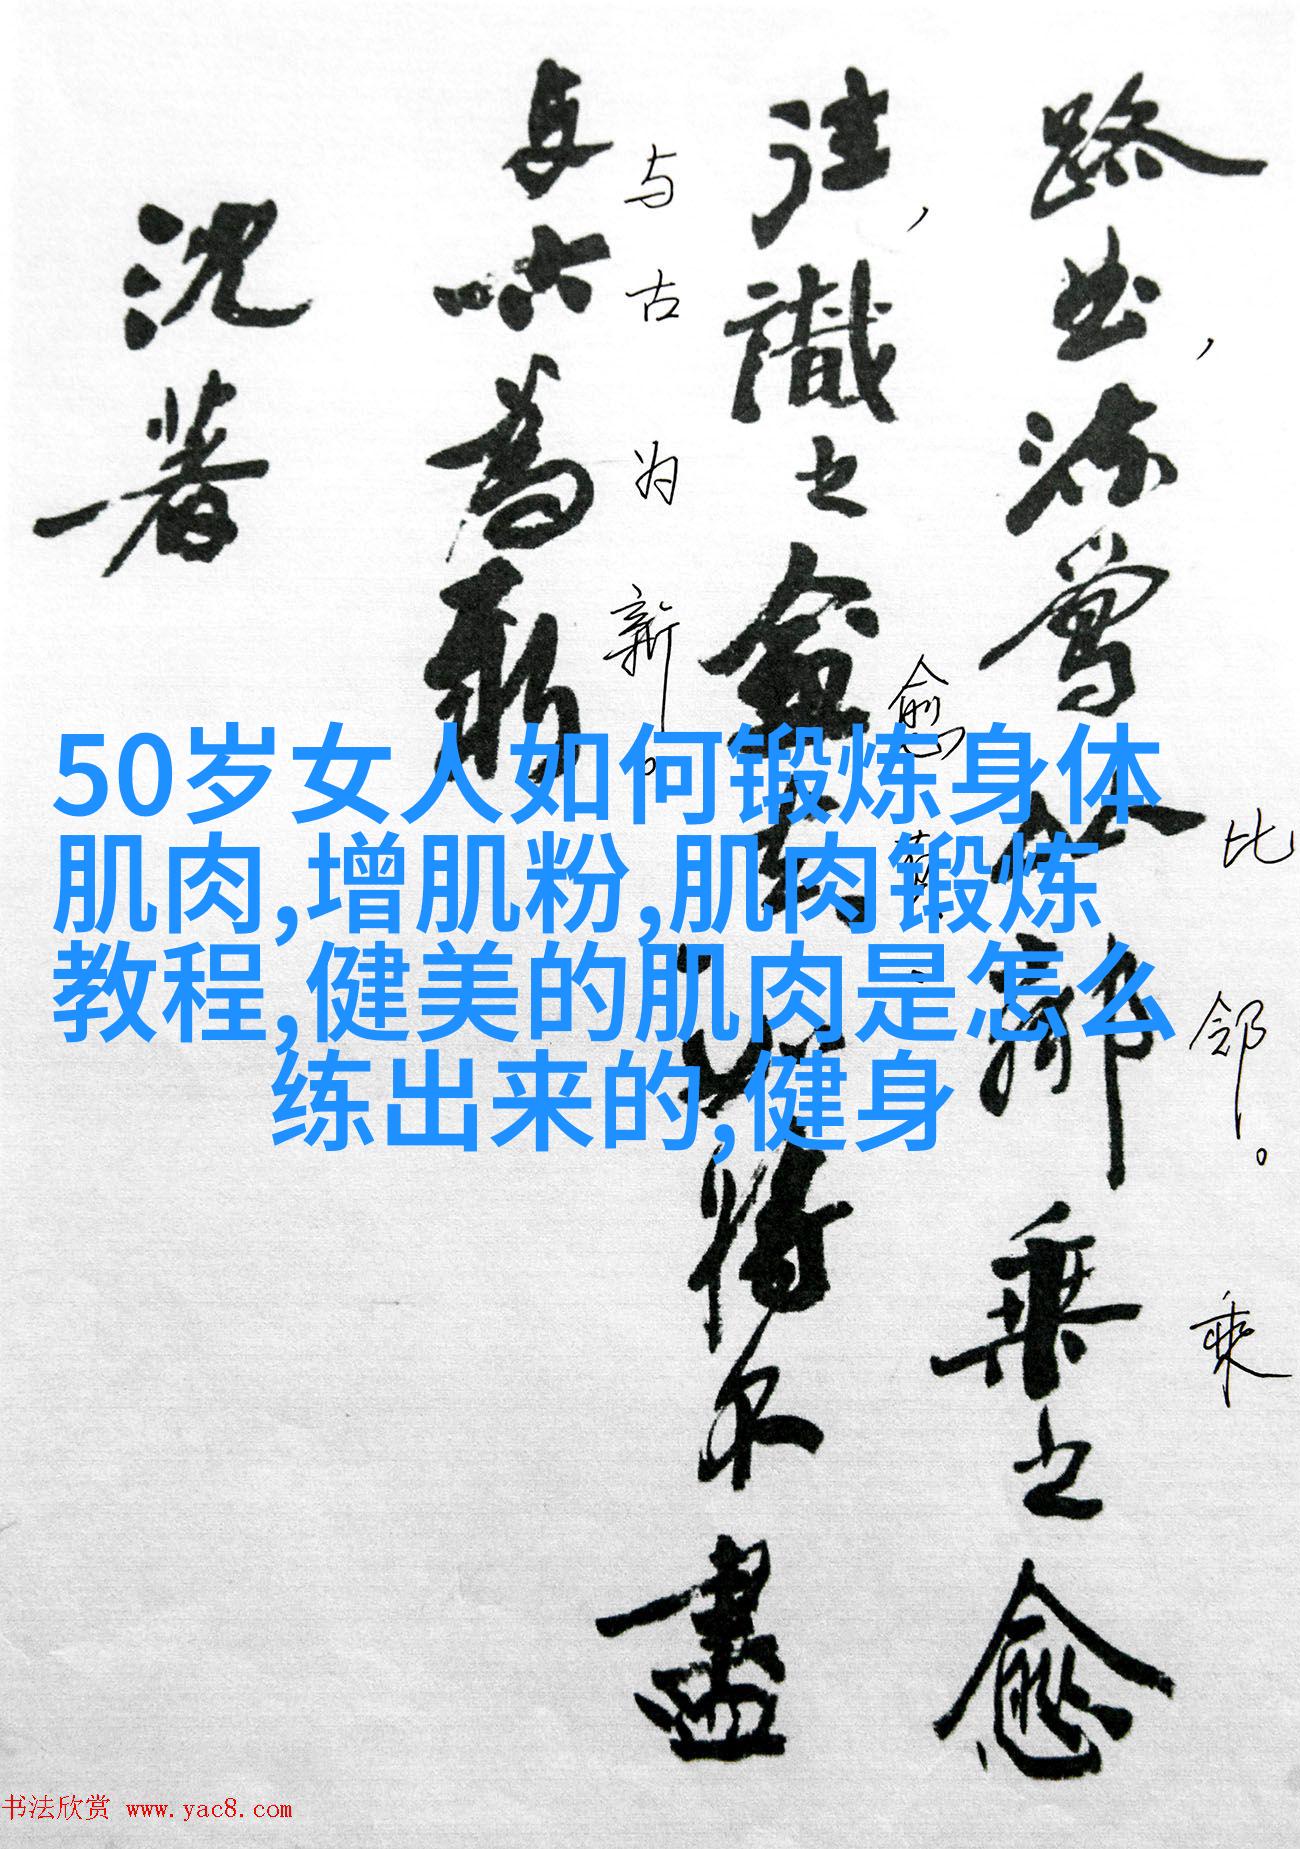 路曲流鶯比鄰乘之愈
，比邻。乘
往識之愈真如將不盡
，愈
与古為新
与古为新。
沈著
50岁女人如何锻炼身体
肌肉,增肌粉,肌肉锻炼
教程,健美的肌肉是怎么
练出来的,健身
书法欣赏 www.yac8.com